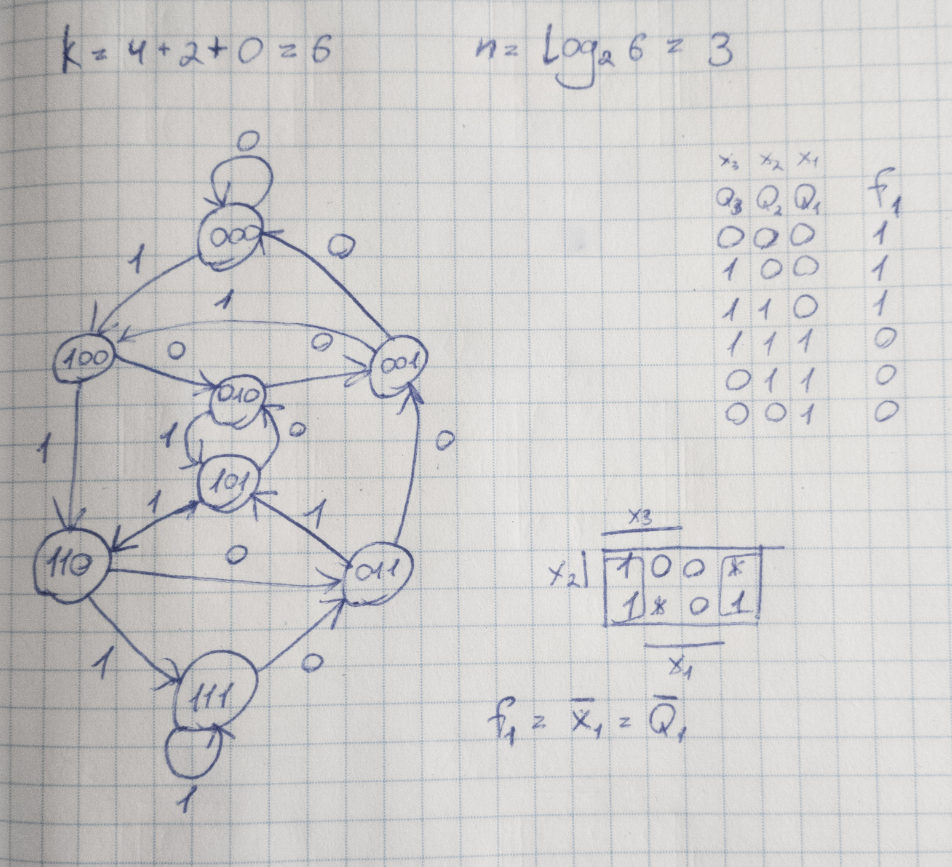 k = 4 + 2 + 0 = 6
n = log₂ 6 = 3
0
000
1
0
1
100
0
0
001
010
1
1
0
0
101
1
1
110
0
011
1
0
111
1
x₃ x₂ x₁
Q₃ Q₂ Q₁ f₁
0 0 0 1
1 0 0 1
1 1 0 1
1 1 1 0
0 1 1 0
0 0 1 0
x3
x₂ 1 0 0 *
1 * 0 1
x₁
f₁ = x̅₁ = Q̅₁